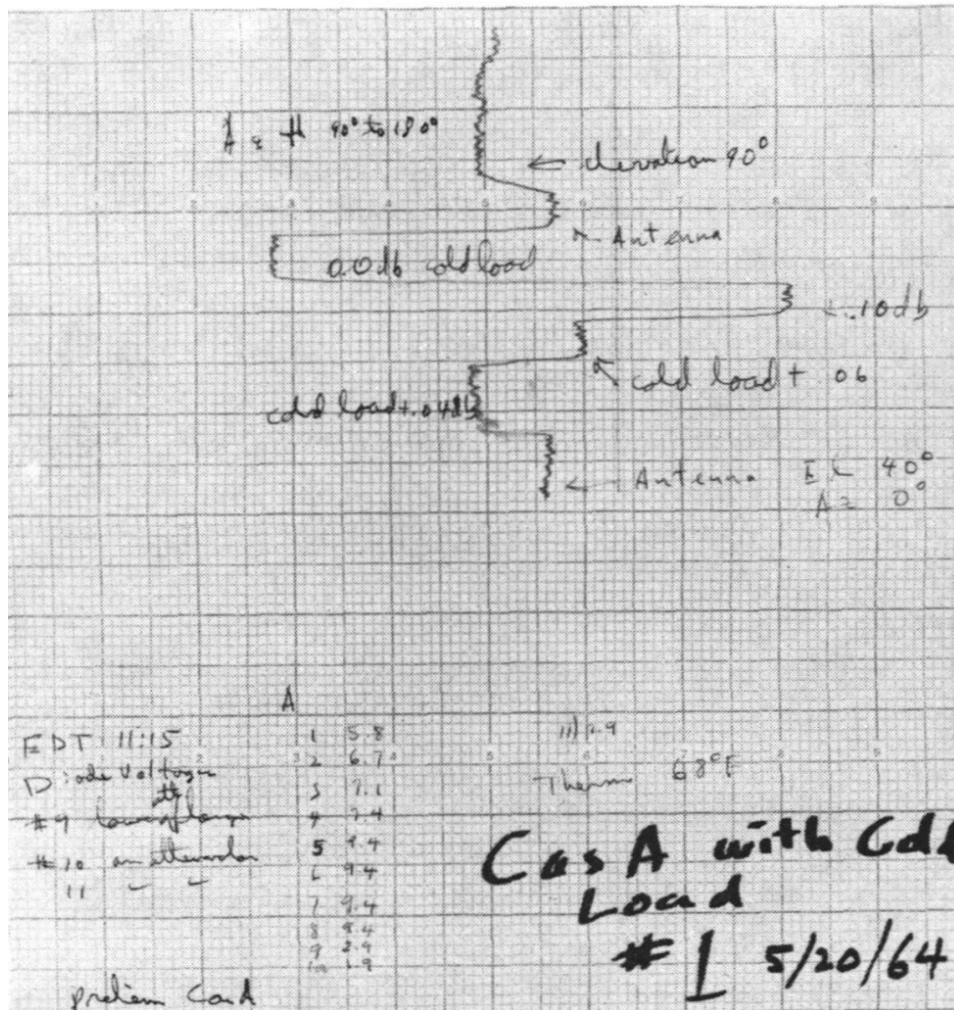 90° to 180°
← elevation 90°
Antenna
0.0 db cold load
← .10 db
cold load + .06
cold load + .04 db
← Antenna El 40°
A = 0°
A
EDT 11:15
Diode Voltages
#9
#10 on attenuator
11
1 5.8
2 6.7
3 7.1
4 7.4
5 9.4
6 9.4
9.4
8 9.4
9 2.9
10 1.9
11) 1.9
Therm 68°F
Cas A with Cold
Load
#1 5/20/64
prelim Cas A